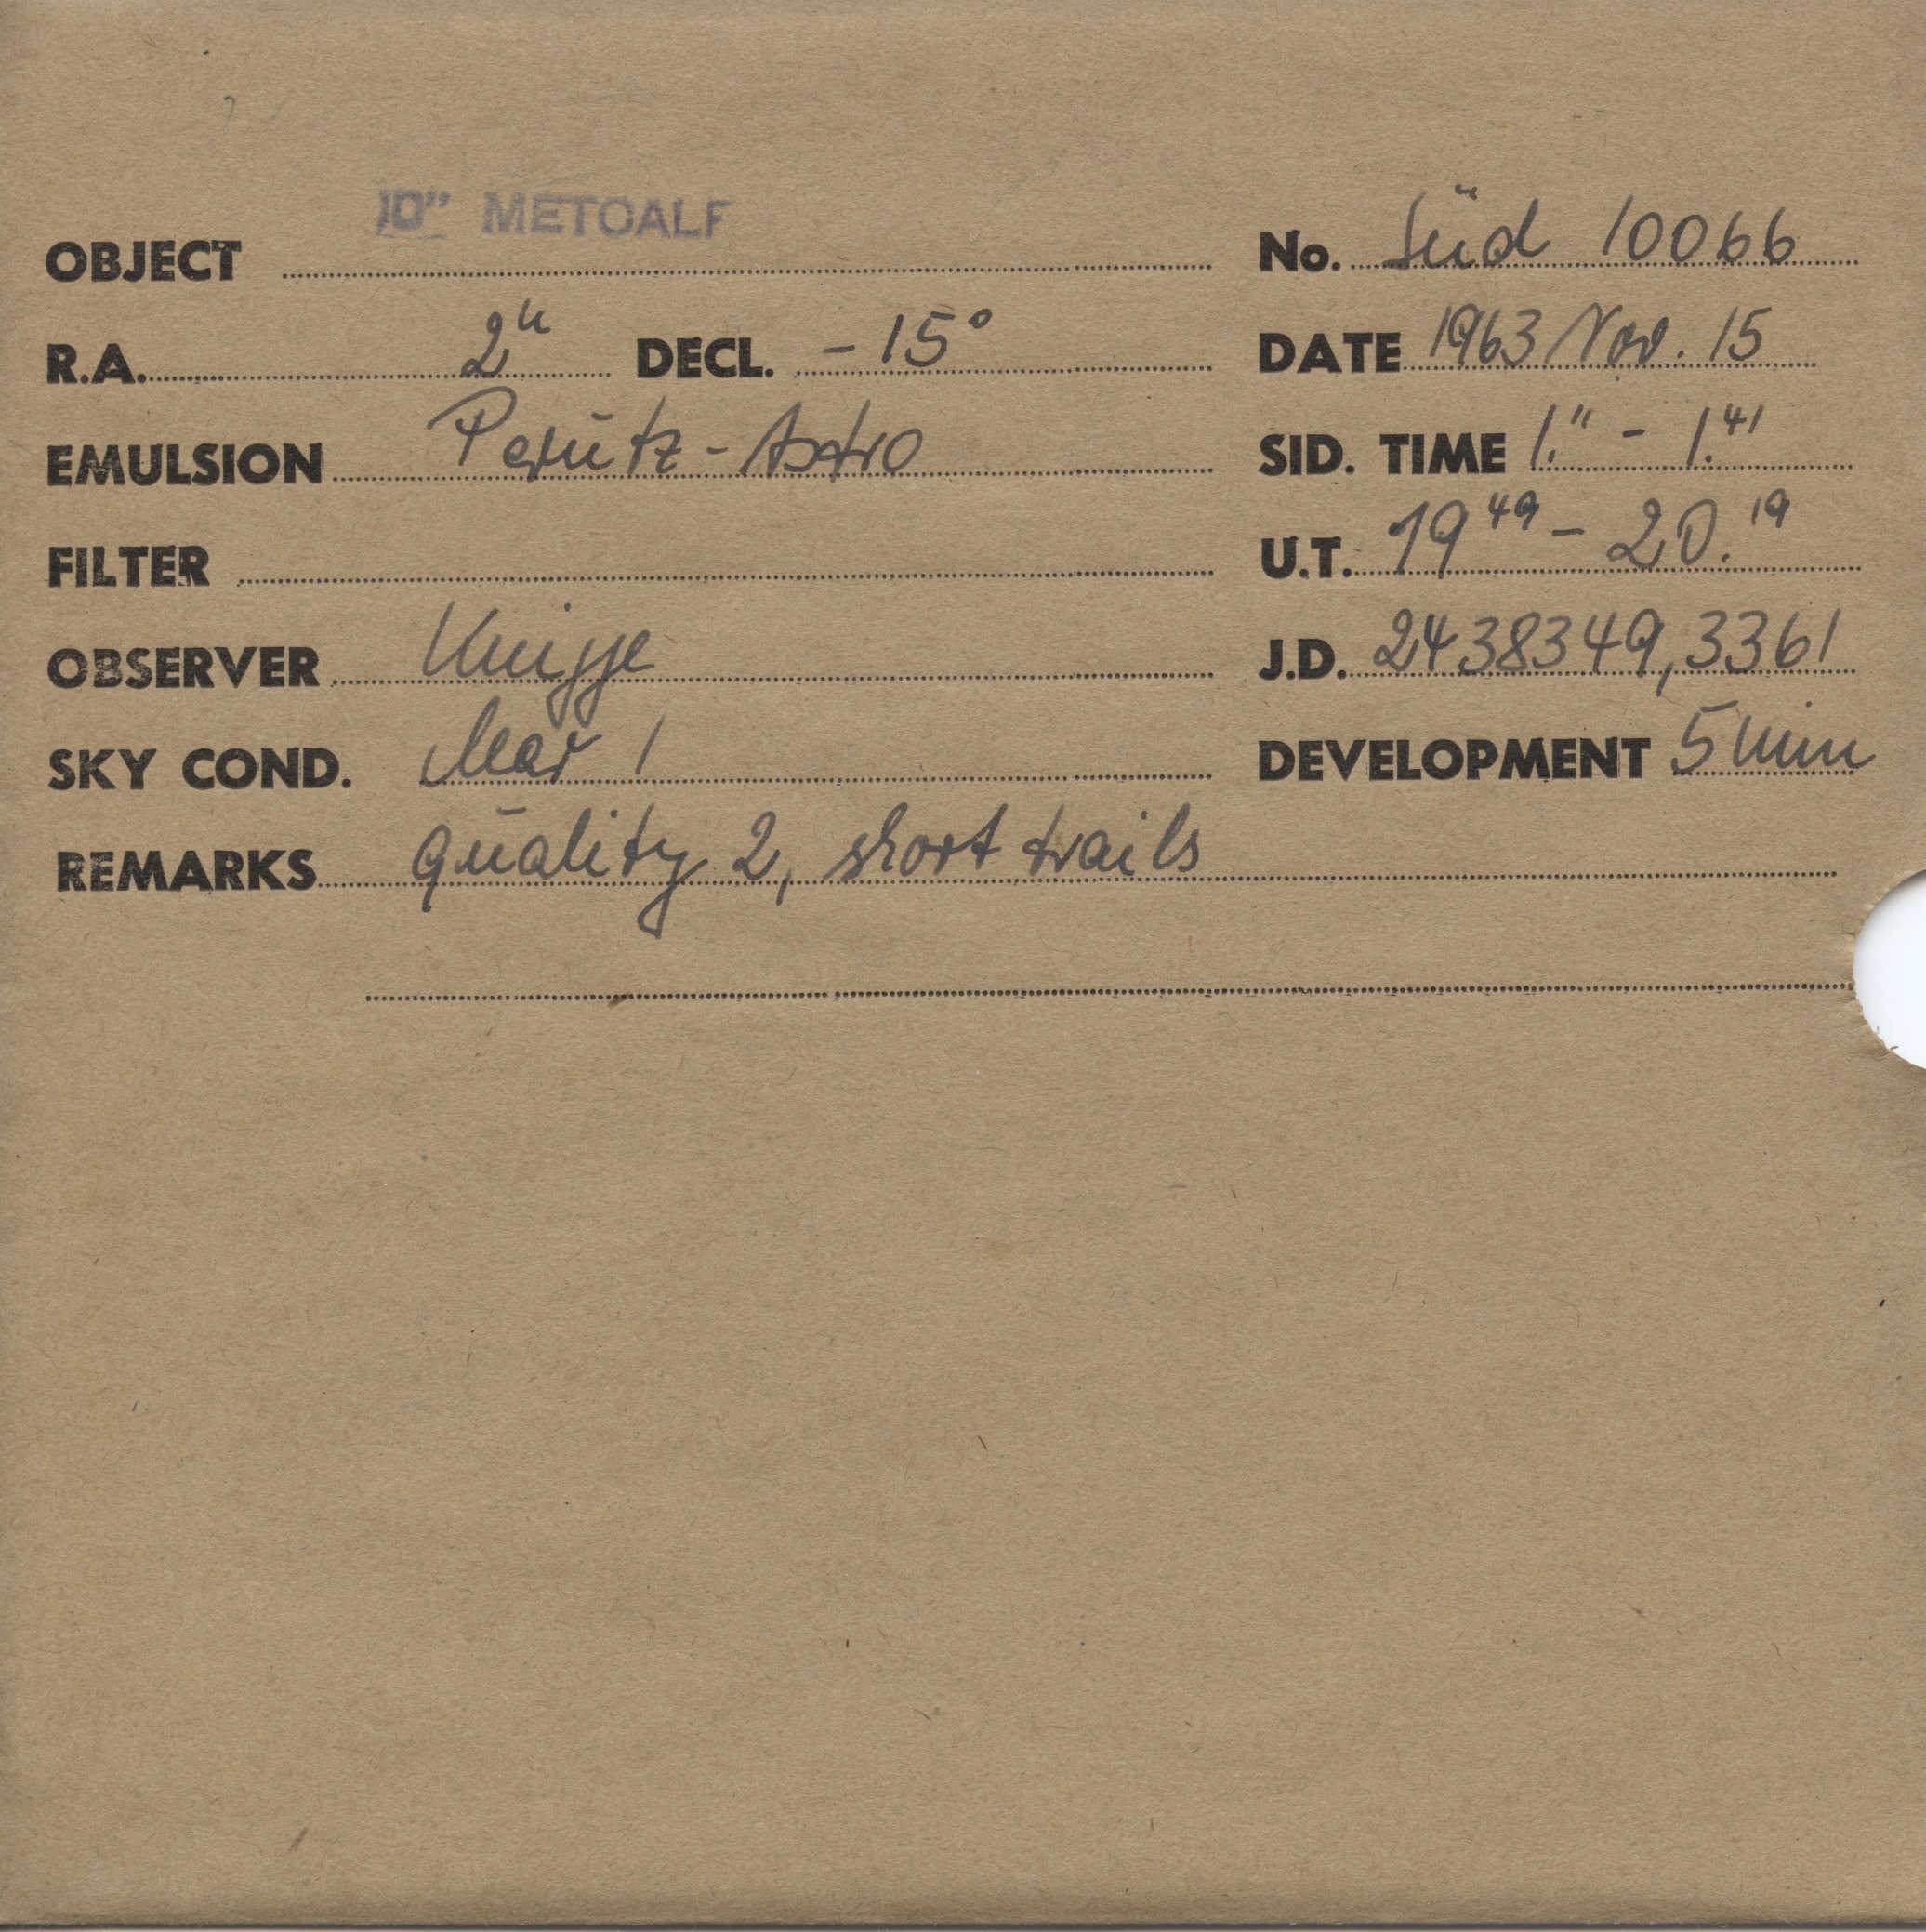 10" METCALF
OBJECT No. Süd 10066
R.A. 2h DECL. -15° DATE 1963 Nov. 15
EMULSION Perutz-Astro SID. TIME 1.11 - 1.41
FILTER U.T. 19 49 - 20. 19
OBSERVER Knigge J.D. 2438349,3361
SKY COND. clear 1 DEVELOPMENT 5 min
REMARKS quality 2, short trails